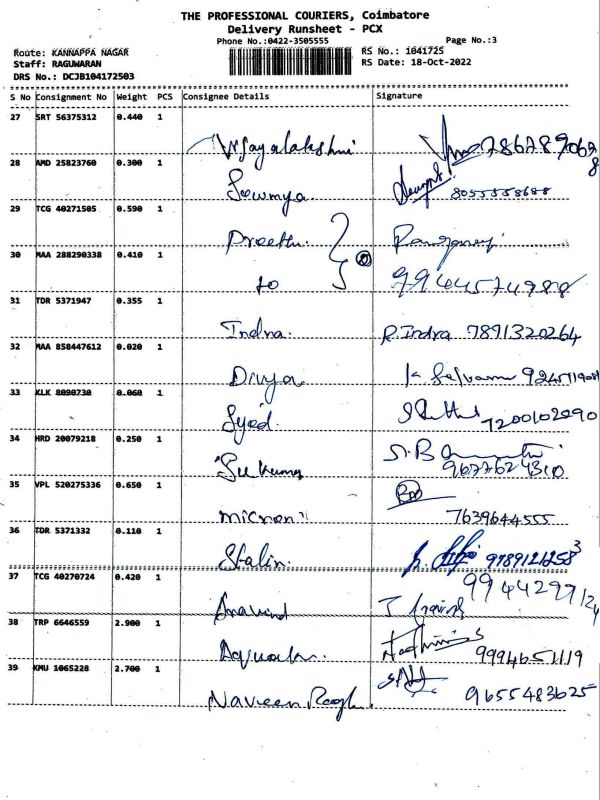 THE PROFESSIONAL COURIERS, Coimbatore
Delivery Runsheet - PCX
Phone No.:0422-3505555
Page No.:3
Route: KANNAPPA NAGAR
RS No.: 1041725
Staff: RAGUWARAN
RS Date: 18-Oct-2022
DRS No.: DCJB104172503
S No Consignment No Weight PCS Consignee Details Signature
27 SRT 56375312 0.440 1
Vijayalakshmi
28 AMD 25823760 0.300 1
Sowmya
29 TCG 40271505 0.590 1
Preethi
30 MAA 288290338 0.410 1
to 9944574988
31 TDR 5371947 0.355 1
Indra. R.Indra 7891320264
32 MAA 858447612 0.020 1
Divya
33 KLK 8090730 0.060 1
Syed. 7200102090
34 HRD 20079218 0.250 1
Sukumar
35 VPL 520275336 0.650 1
micron 7639644555
36 TDR 5371332 0.110 1
Stalin. 97891212583
37 TCG 40270724 0.420 1
9944299124
Aravind
38 TRP 6646559 2.900 1
9994651119
39 KMU 1065228 2.700 1
Naveen 9655483625